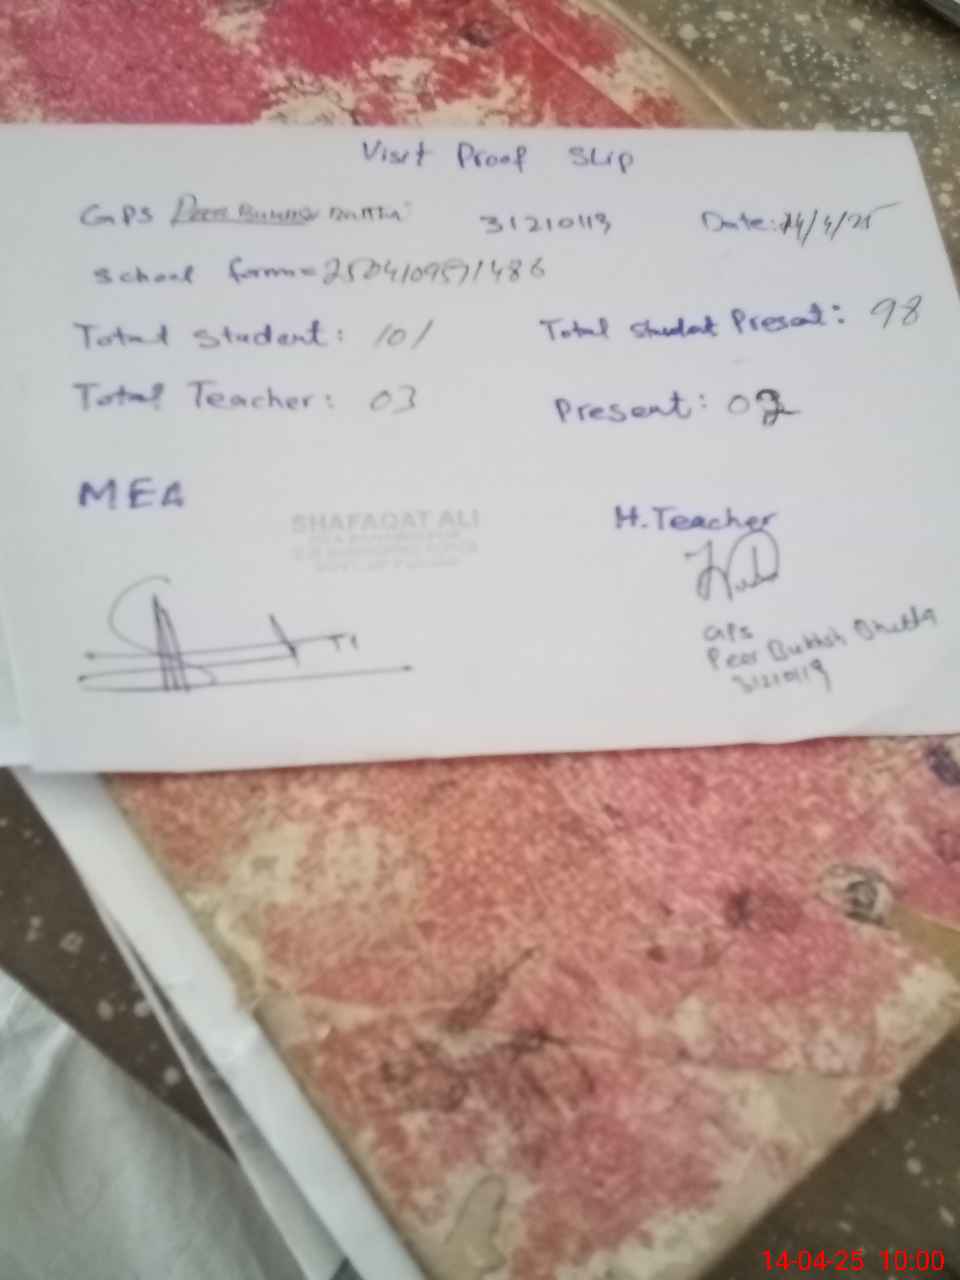 Visit Proof Slip
GPS Peer Bukhsh Bhatta 31210119 Date: 14/4/25
School form = 2504109571486
Total Student: 101 Total Student Present: 98
Total Teacher: 03 Present: 02
MEA H. Teacher
SHAFAQAT ALI
GPS
Peer Bukhsh Bhatta
31210119
14-04-25 10:00